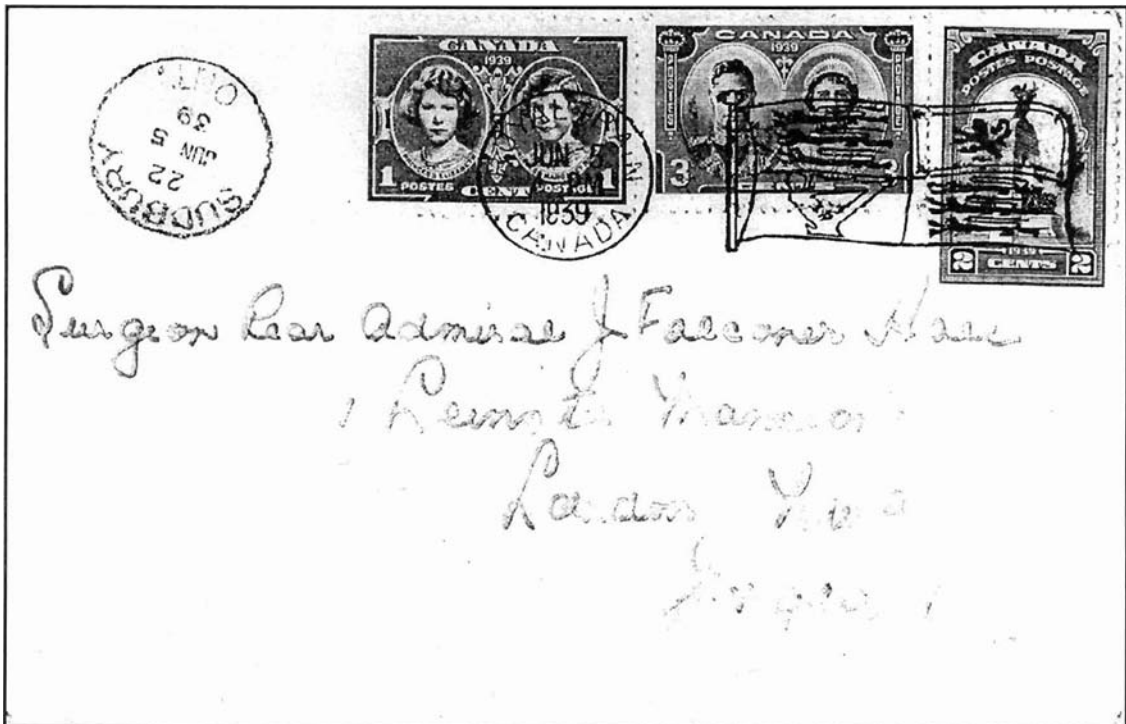 SUDBURY
22
JUN 5
39
ONT.
CANADA
1939
1 POSTES CENT POSTAGE 1
JUN 5
1939
CANADA
CANADA
1939
POSTES
POSTAGE
3
3
CANADA
POSTES POSTAGE
1939
2 CENTS 2
Surgeon Rear Admiral J. Falconer Hall
1 Leinster Mansions
London